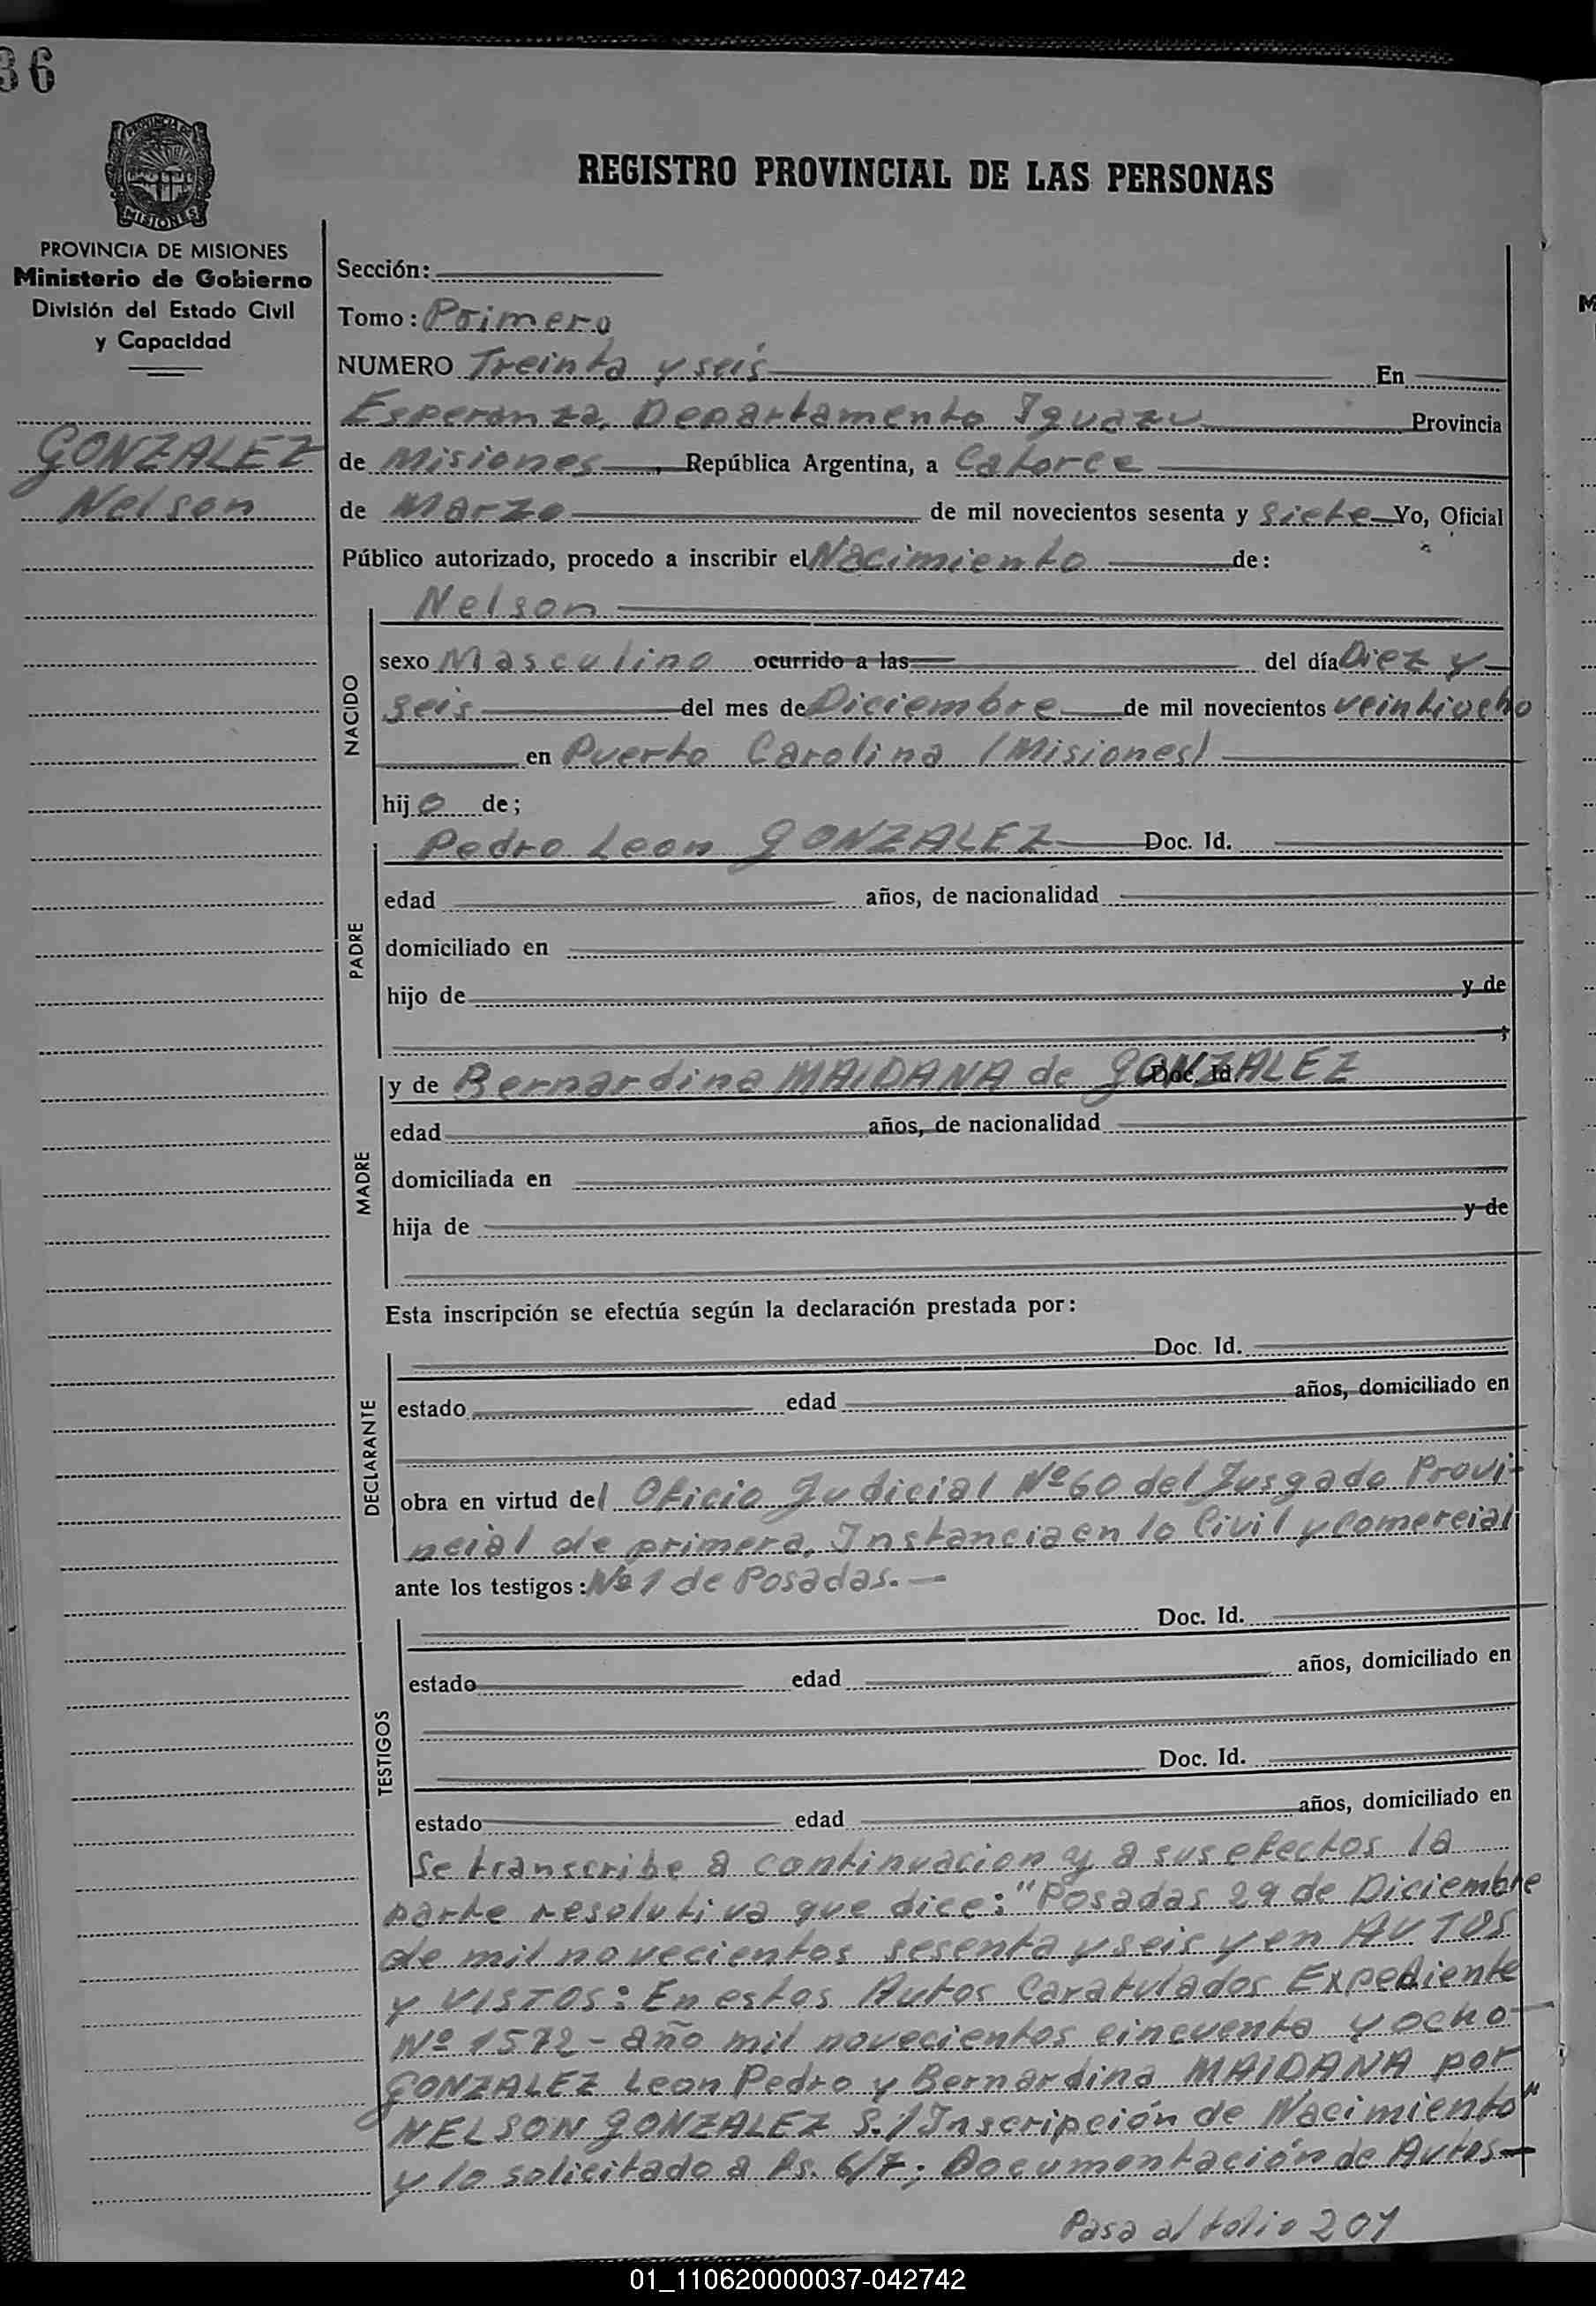 36
REGISTRO PROVINCIAL DE LAS PERSONAS
PROVINCIA DE
MISIONES
PROVINCIA DE MISIONES
Ministerio de Gobierno
División del Estado Civil
y Capacidad
GONZALEZ
Nelson
Sección:
Tomo: Primero
NUMERO Treinta y seis En
Esperanza, Departamento Iguazu Provincia
de Misiones, República Argentina, a Catorce
de Marzo de mil novecientos sesenta y Siete Yo, Oficial
Público autorizado, procedo a inscribir el Nacimiento de:
NACIDO
Nelson
sexo Masculino ocurrido a las del día Diez y
seis del mes de Diciembre de mil novecientos veintiocho
en Puerto Carolina (Misiones)
hijo de;
PADRE
Pedro Leon GONZALEZ Doc. Id.
edad años, de nacionalidad
domiciliado en
hijo de y de
;
MADRE
y de Bernardina MAIDANA de GONZALEZ Doc. Id.
edad años, de nacionalidad
domiciliada en
hija de y de
Esta inscripción se efectúa según la declaración prestada por:
DECLARANTE
Doc. Id.
estado edad años, domiciliado en
obra en virtud del Oficio Judicial Nº 60 del Jusgado Provi-
ncial de primera, Instancia en lo Civil y Comercial
ante los testigos: Nº 1 de Posadas.—
TESTIGOS
Doc. Id.
estado edad años, domiciliado en
Doc. Id.
estado edad años, domiciliado en
Se transcribe a continuacion y a sus efectos la
parte resolutiva que dice: "Posadas 29 de Diciembre
de mil novecientos sesenta y seis y en AUTOS
y VISTOS: En estos Autos Caratulados Expediente
Nº 1572 - año mil novecientos cincuenta y ocho
GONZALEZ Leon Pedro y Bernardina MAIDANA por
NELSON GONZALEZ S./Inscripción de Nacimiento"
y lo solicitado a fs. 6/7; Documentación de Autos—
Pasa al folio 201
01_110620000037-042742